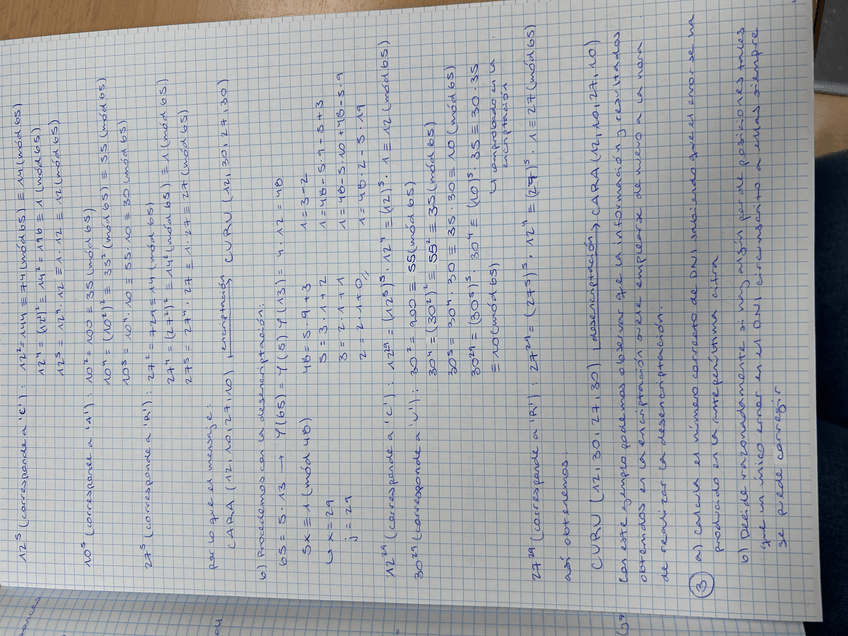 12⁵ (corresponde a 'C') : 12² = 144 ≡ 74 (mód 65) ≡ 14 (mód 65)
12⁴ = (12²)² = 14² = 196 ≡ 1 (mód 65)
12⁵ = 12⁴ · 12 ≡ 1 · 12 ≡ 12 (mód 65)
10⁵ (corresponde a 'A') : 10² = 100 ≡ 35 (mód 65)
10⁴ = (10²)² ≡ 35² (mód 65) ≡ 55 (mód 65)
10⁵ = 10⁴ · 10 ≡ 55 · 10 ≡ 30 (mód 65)
27⁵ (corresponde a 'R') : 27² = 729 ≡ 14 (mód 65)
27⁴ = (27²)² ≡ 14² (mód 65) ≡ 1 (mód 65)
27⁵ = 27⁴ · 27 ≡ 1 · 27 ≡ 27 (mód 65)
por lo que el mensaje:
CARA (12, 10, 27, 10) encriptación CURU (12, 30, 27, 30)
b) Procedemos con la desencriptación:
65 = 5 · 13 → φ(65) = φ(5) φ(13) = 4 · 12 = 48
5x ≡ 1 (mód 48) 48 = 5 · 9 + 3 1 = 3 - 2
↳ x = 29 5 = 3 · 1 + 2 1 = 48 - 5 · 9 - 5 + 3
j = 29 3 = 2 · 1 + 1 1 = 48 - 5 · 10 + 48 - 5 · 9
2 = 2 · 1 + 0 1 = 48 · 2 - 5 · 19
12²⁹ (corresponde a 'C') : 12²⁹ = (12⁵)⁵ · 12⁴ = (12)⁵ · 1 ≡ 12 (mód 65)
30²⁹ (corresponde a 'U') : 30² = 900 ≡ 55 (mód 65)
30⁴ = (30²)² ≡ 55² ≡ 35 (mód 65)
30⁵ = 30⁴ · 30 ≡ 35 · 30 ≡ 10 (mód 65)
30²⁹ = (30⁵)⁵ · 30⁴ = (10)⁵ · 35 ≡ 30 · 35
≡ 10 (mód 65) ↳ comprobado en la
encriptación
27²⁹ (corresponde a 'R') : 27²⁹ = (27⁵)⁵ · 27⁴ = (27)⁵ · 1 ≡ 27 (mód 65)
así obtenemos
CURU (12, 30, 27, 30) desencriptación CARA (12, 10, 27, 10)
Con este ejemplo podemos observar que la información y resultados
obtenidos en la encriptación suele emplearse de nuevo a la hora
de realizar la desencriptación.
③ a) Calcula el número correcto de DNI sabiendo que el error se ha
producido en la antepenúltima cifra
b) Decide razonadamente si hay algún par de posiciones tales
que un único error en el DNI circunscrito a ellas siempre
se puede corregir